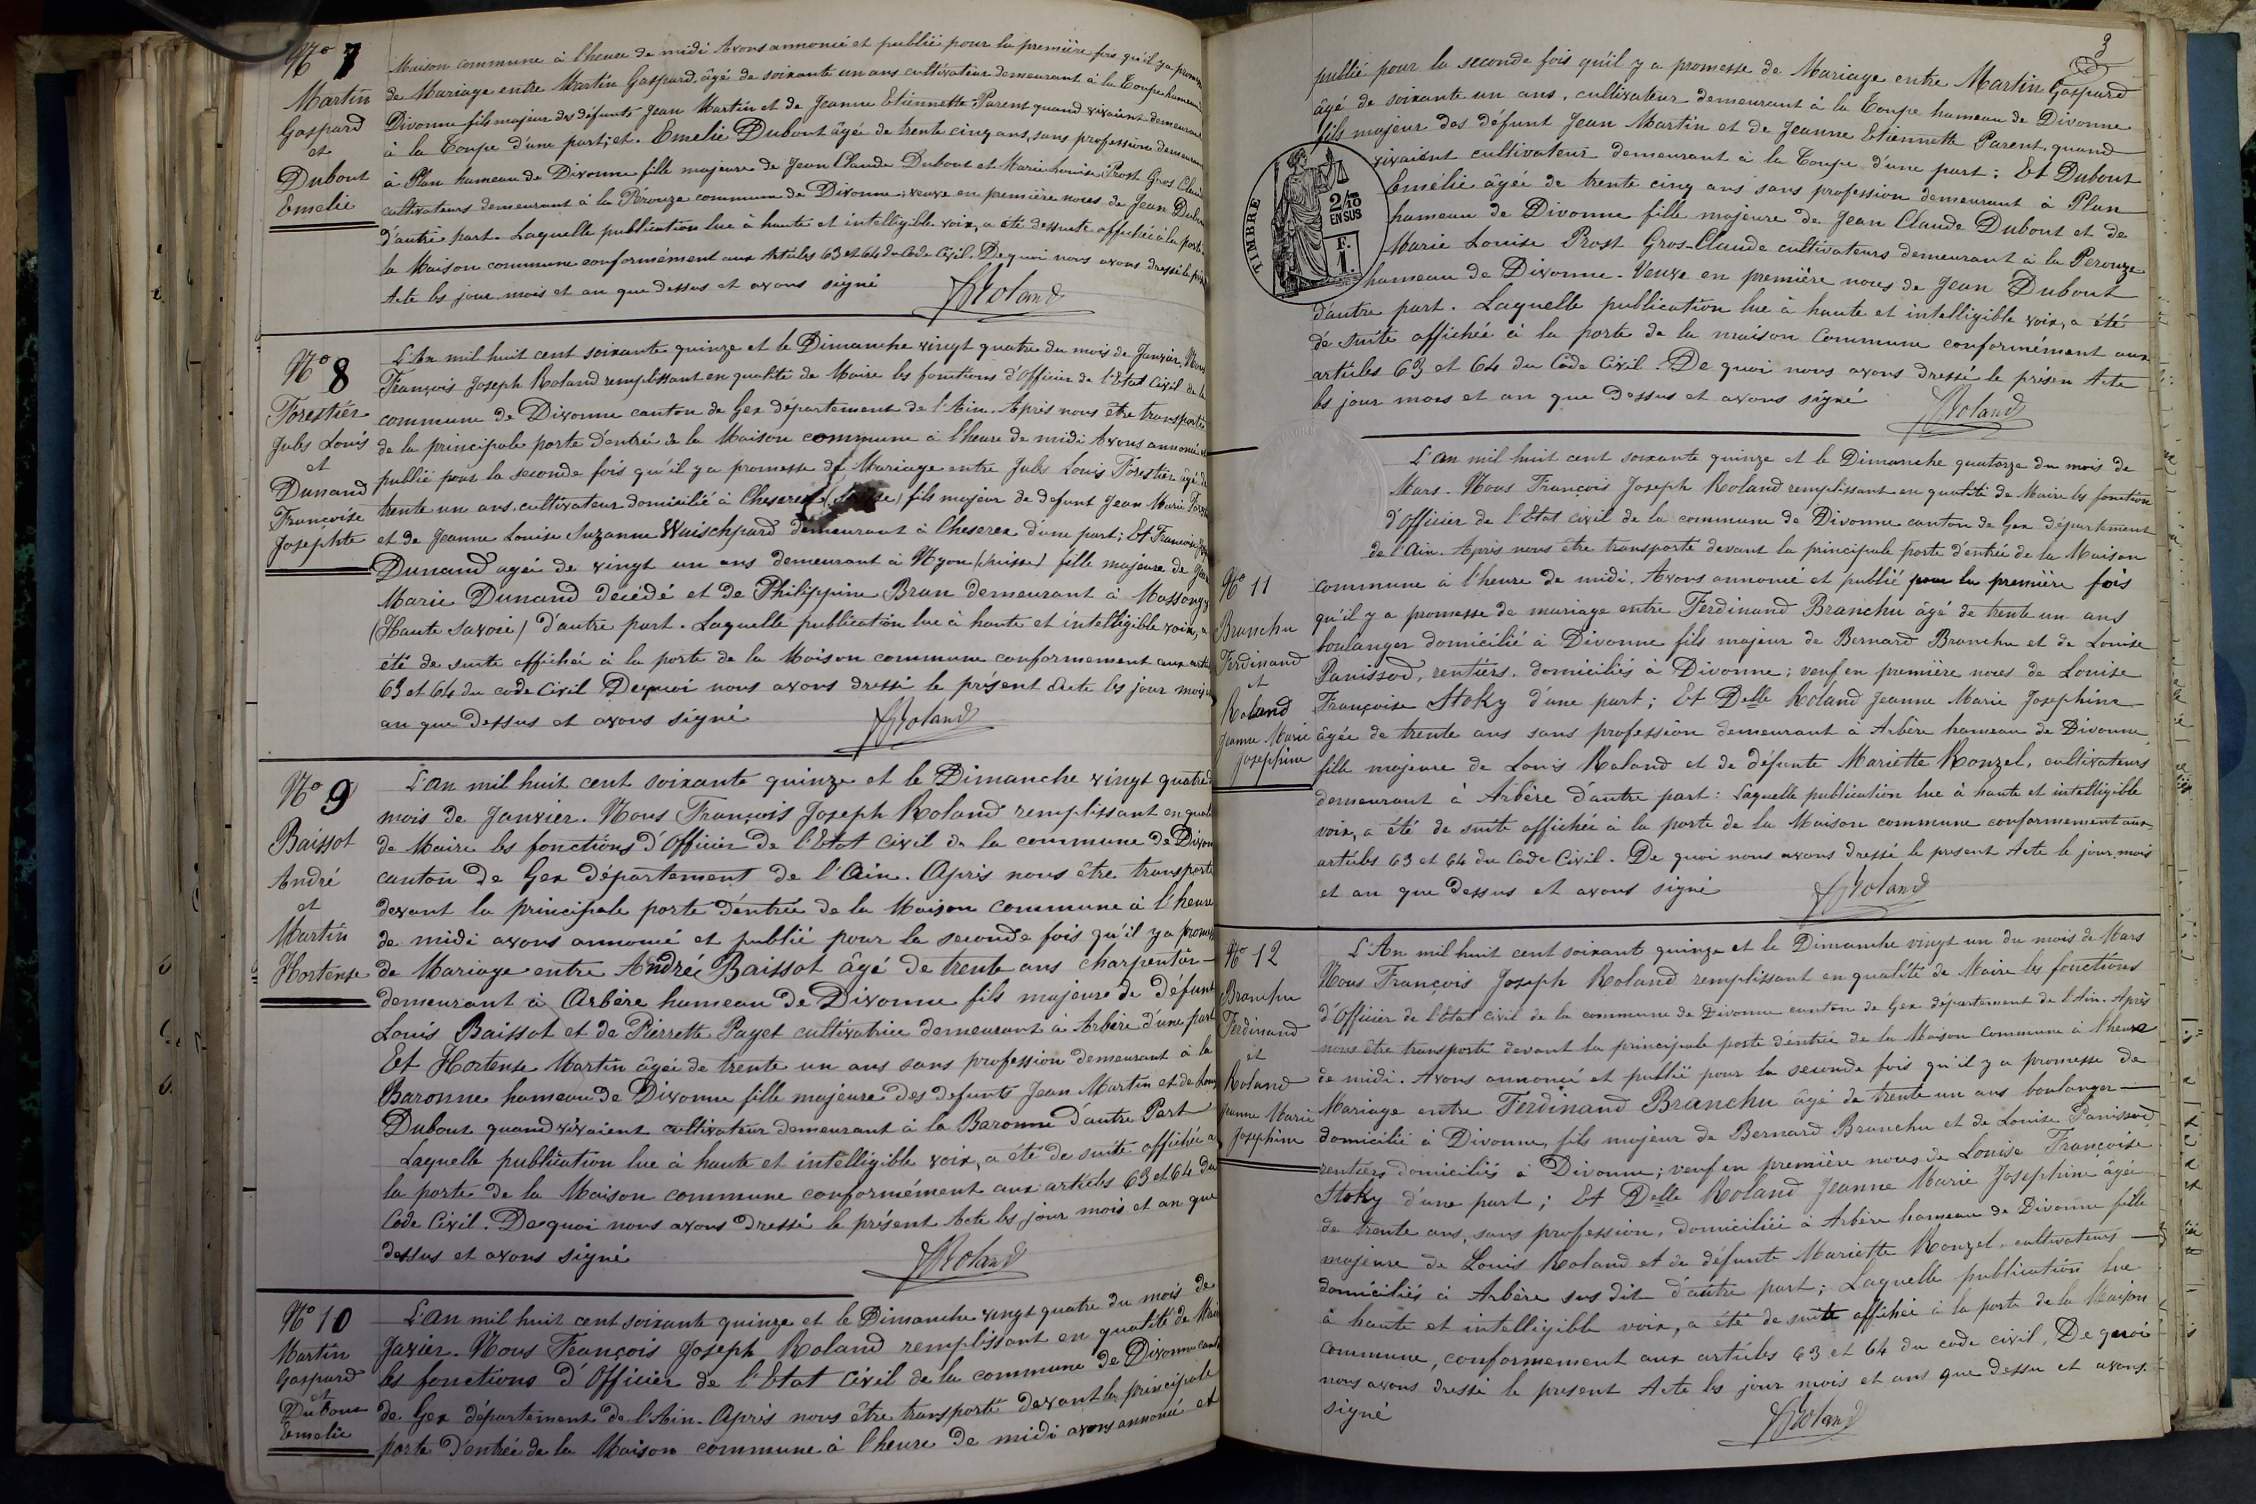 No 7
Martin
Gaspard
et
Dubout
Emelie
Maison commune à l'heure de midi Avons annoncé et publié pour la première fois qu'il y a
de Mariage entre Martin Gaspard âgé de soixante un ans cultivateur demeurant à la Coupe
Divonne fils majeur des défunts Jean Martin et de Jeanne Etiennette Parent quand vivaient
à la Coupe d'une part; et. Emelie Dubout âgée de trente cinq ans, sans profession
à Plan hameau de Divonne fille majeure de Jean Claude Dubout et Marie Louise Prost Gros
cultivateurs demeurant à la Pérouze commune de Divonne; veuve en première noces de Jean
d'autre part. Laquelle publication lue à haute et intelligible voix, a été de suite affichée à la
la Maison commune conformément aux Articles 63 et 64 du Code Civil. De quoi nous avons dressé le
Acte les jour mois et an que dessus et avons signé
FRoland
No 8
Forestier
Jules Louis
et
Dunand
Françoise
Josephte
L'An mil huit cent soixante quinze et le Dimanche vingt quatre du mois de Janvier, Nous
François Joseph Roland remplissant en qualité de Maire les fonctions d'Officier de l'Etat Civil de la
commune de Divonne canton de Gex département de l'Ain. Après nous être transporté
de la principale porte d'entrée de la Maison commune à l'heure de midi Avons annoncé et
publié pour la seconde fois qu'il y a promesse de Mariage entre Jules Louis Forestier âgé de
trente un ans cultivateur domicilié à Cheserex fils majeur de defunt Jean Marie
et de Jeanne Louise Suzanne Waischjard demeurant à Cheserex d'une part; Et
Dunand agée de vingt un ans demeurant à Nyon (Suisse) fille majeure de
Marie Dunand décédé et de Philippine Brun demeurant à Massongy
(Haute Savoie) d'autre part. Laquelle publication lue à haute et intelligible voix, a
été de suite affichée à la porte de la Maison commune conformement aux
63 et 64 du code Civil De quoi nous avons dressé le présent Acte les jour mois
an que dessus et avons signé
FRoland
No 9
Baissot
André
et
Martin
Hortense
L'an mil huit cent soixante quinze et le Dimanche vingt quatre
mois de Janvier. Nous François Joseph Roland remplissant en
de Maire les fonctions d'Officier de l'Etat Civil de la commune de
canton de Gex département de l'Ain. Après nous être transporté
devant la principale porte d'entrée de la Maison commune à l'heure
de midi avons annoncé et publié pour la seconde fois qu'il y a
de Mariage entre André Baissot âgé de trente ans charpentier
demeurant à Arbère hameau de Divonne fils majeure de défunt
Louis Baissot et de Pierrette Paget cultivatrice demeurant à Arbère d'une part
Et Hortense Martin âgée de trente un ans sans profession demeurant à la
Baronne hameau de Divonne fille majeure des defunts Jean Martin et de
Dubout quand vivaient cultivateur demeurant à la Baronne d'autre Part
Laquelle publication lue à haute et intelligible voix, a été de suite affichée a
la porte de la Maison commune conformément aux articles 63 et 64 du
Code Civil. De quoi nous avons dressé le présent Acte les jour mois et an que
dessus et avons signé
FRoland
No 10
Martin
Gaspard
et
Dubout
Emelie
L'an mil huit cent soixante quinze et le Dimanche vingt quatre du mois de
Javier. Nous François Joseph Roland remplissant en qualité de
les fonctions d'Officier de l'Etat Civil de la commune de Divonne
de Gex département de l'Ain. Après nous être transporté devant la principale
porte d'entrée de la Maison commune à l'heure de midi avons annoncé et
3
publié pour la seconde fois qu'il y a promesse de Mariage entre Martin Gaspard
âgé de soixante un ans, cultivateur demeurant à la Coupe hameau de Divonne
fils majeur des défunt Jean Martin et de Jeanne Etiennette Parent, quand
vivaient cultivateur demeurant à la Coupe d'une part; Et Dubout
Emélie âgée de trente cinq ans sans profession demeurant à Plan
hameau de Divonne fille majeure de Jean Claude Dubout et de
Marie Louise Prost Gros-Claude cultivateurs demeurant à la Perouze
hameau de Divonne. Veuve en première noces de Jean Dubout
d'autre part. Laquelle publication lue à haute et intelligible voix, a été
de suite affichée à la porte de la maison Commune conformément aux
articles 63 et 64 du Code Civil. De quoi nous avons dressé le présen Acte
les jour mois et an que dessus et avons signé
FRoland
TIMBRE
2/10
EN SUS
F.
1.
No 11
Branchu
Ferdinand
et
Roland
Jeanne Marie
Josephine
L'an mil huit cent soixante quinze et le Dimanche quatorze du mois de
Mars. Nous François Joseph Roland remplissant en qualité de Maire les fonction
d'Officier de l'Etat civil de la commune de Divonne canton de Gex département
de l'Ain. Après nous être transporté devant la principale porte d'entrée de la Maison
commune à l'heure de midi. Avons annoncé et publié pour la première fois
qu'il y a promesse de mariage entre Ferdinand Branchu âgé de trente un ans
boulanger domicilié à Divonne fils majeur de Bernard Branchu et de Louise
Panissod, rentiers, domiciliés à Divonne; veuf en première noces de Louise
Françoise Stoky d'une part; Et Delle Roland Jeanne Marie Josephine
âgée de trente ans sans profession demeurant à Arbère hameau de Divonne
fille majeure de Louis Roland et de défunte Mariette Ronzel, cultivateurs
demeurant à Arbère d'autre part: Laquelle publication lue à haute et intelligible
voix, a été de suite affichée à la porte de la Maison commune conformement aux
articles 63 et 64 du Code Civil. De quoi nous avons dressé le present Acte le jour mois
et an que dessus et avons signé
FRoland
No 12
Branchu
Ferdinand
et
Roland
Jeanne Marie
Josephine
L'An mil huit cent soixant quinze et le Dimanche vingt un du mois de Mars
Nous François Joseph Roland remplissant en qualité de Maire les fonctions
d'Officier de l'Etat civil de la commune de Divonne canton de Gex département de l'Ain. Après
nous être transporté devant la principale porte d'entrée de la Maison Commune à l'heure
de midi. Avons annoncé et publié pour la seconde fois qu'il y a promesse de
Mariage entre Ferdinand Branchu âgé de trente un ans boulanger
domicilié à Divonne, fils majeur de Bernard Branchu et de Louise Panissod
rentiers domiciliés à Divonne; veuf en première noces de Louise Françoise
Stoky d'une part; Et Delle Roland Jeanne Marie Josephine âgée
de trente ans, sans profession, domiciliée à Arbère hameau de Divonne fille
majeure de Louis Roland et de défunte Mariette Ronzel, cultivateurs
domiciliés à Arbère sus dit d'autre part; Laquelle publication lue
à haute et intelligible voix, a été de suite affichée à la porte de la Maison
commune, conformement aux articles 63 et 64 du code civil. De quoi
nous avons dressé le present Acte les jour mois et ans que dessu et avons
signé
FRoland